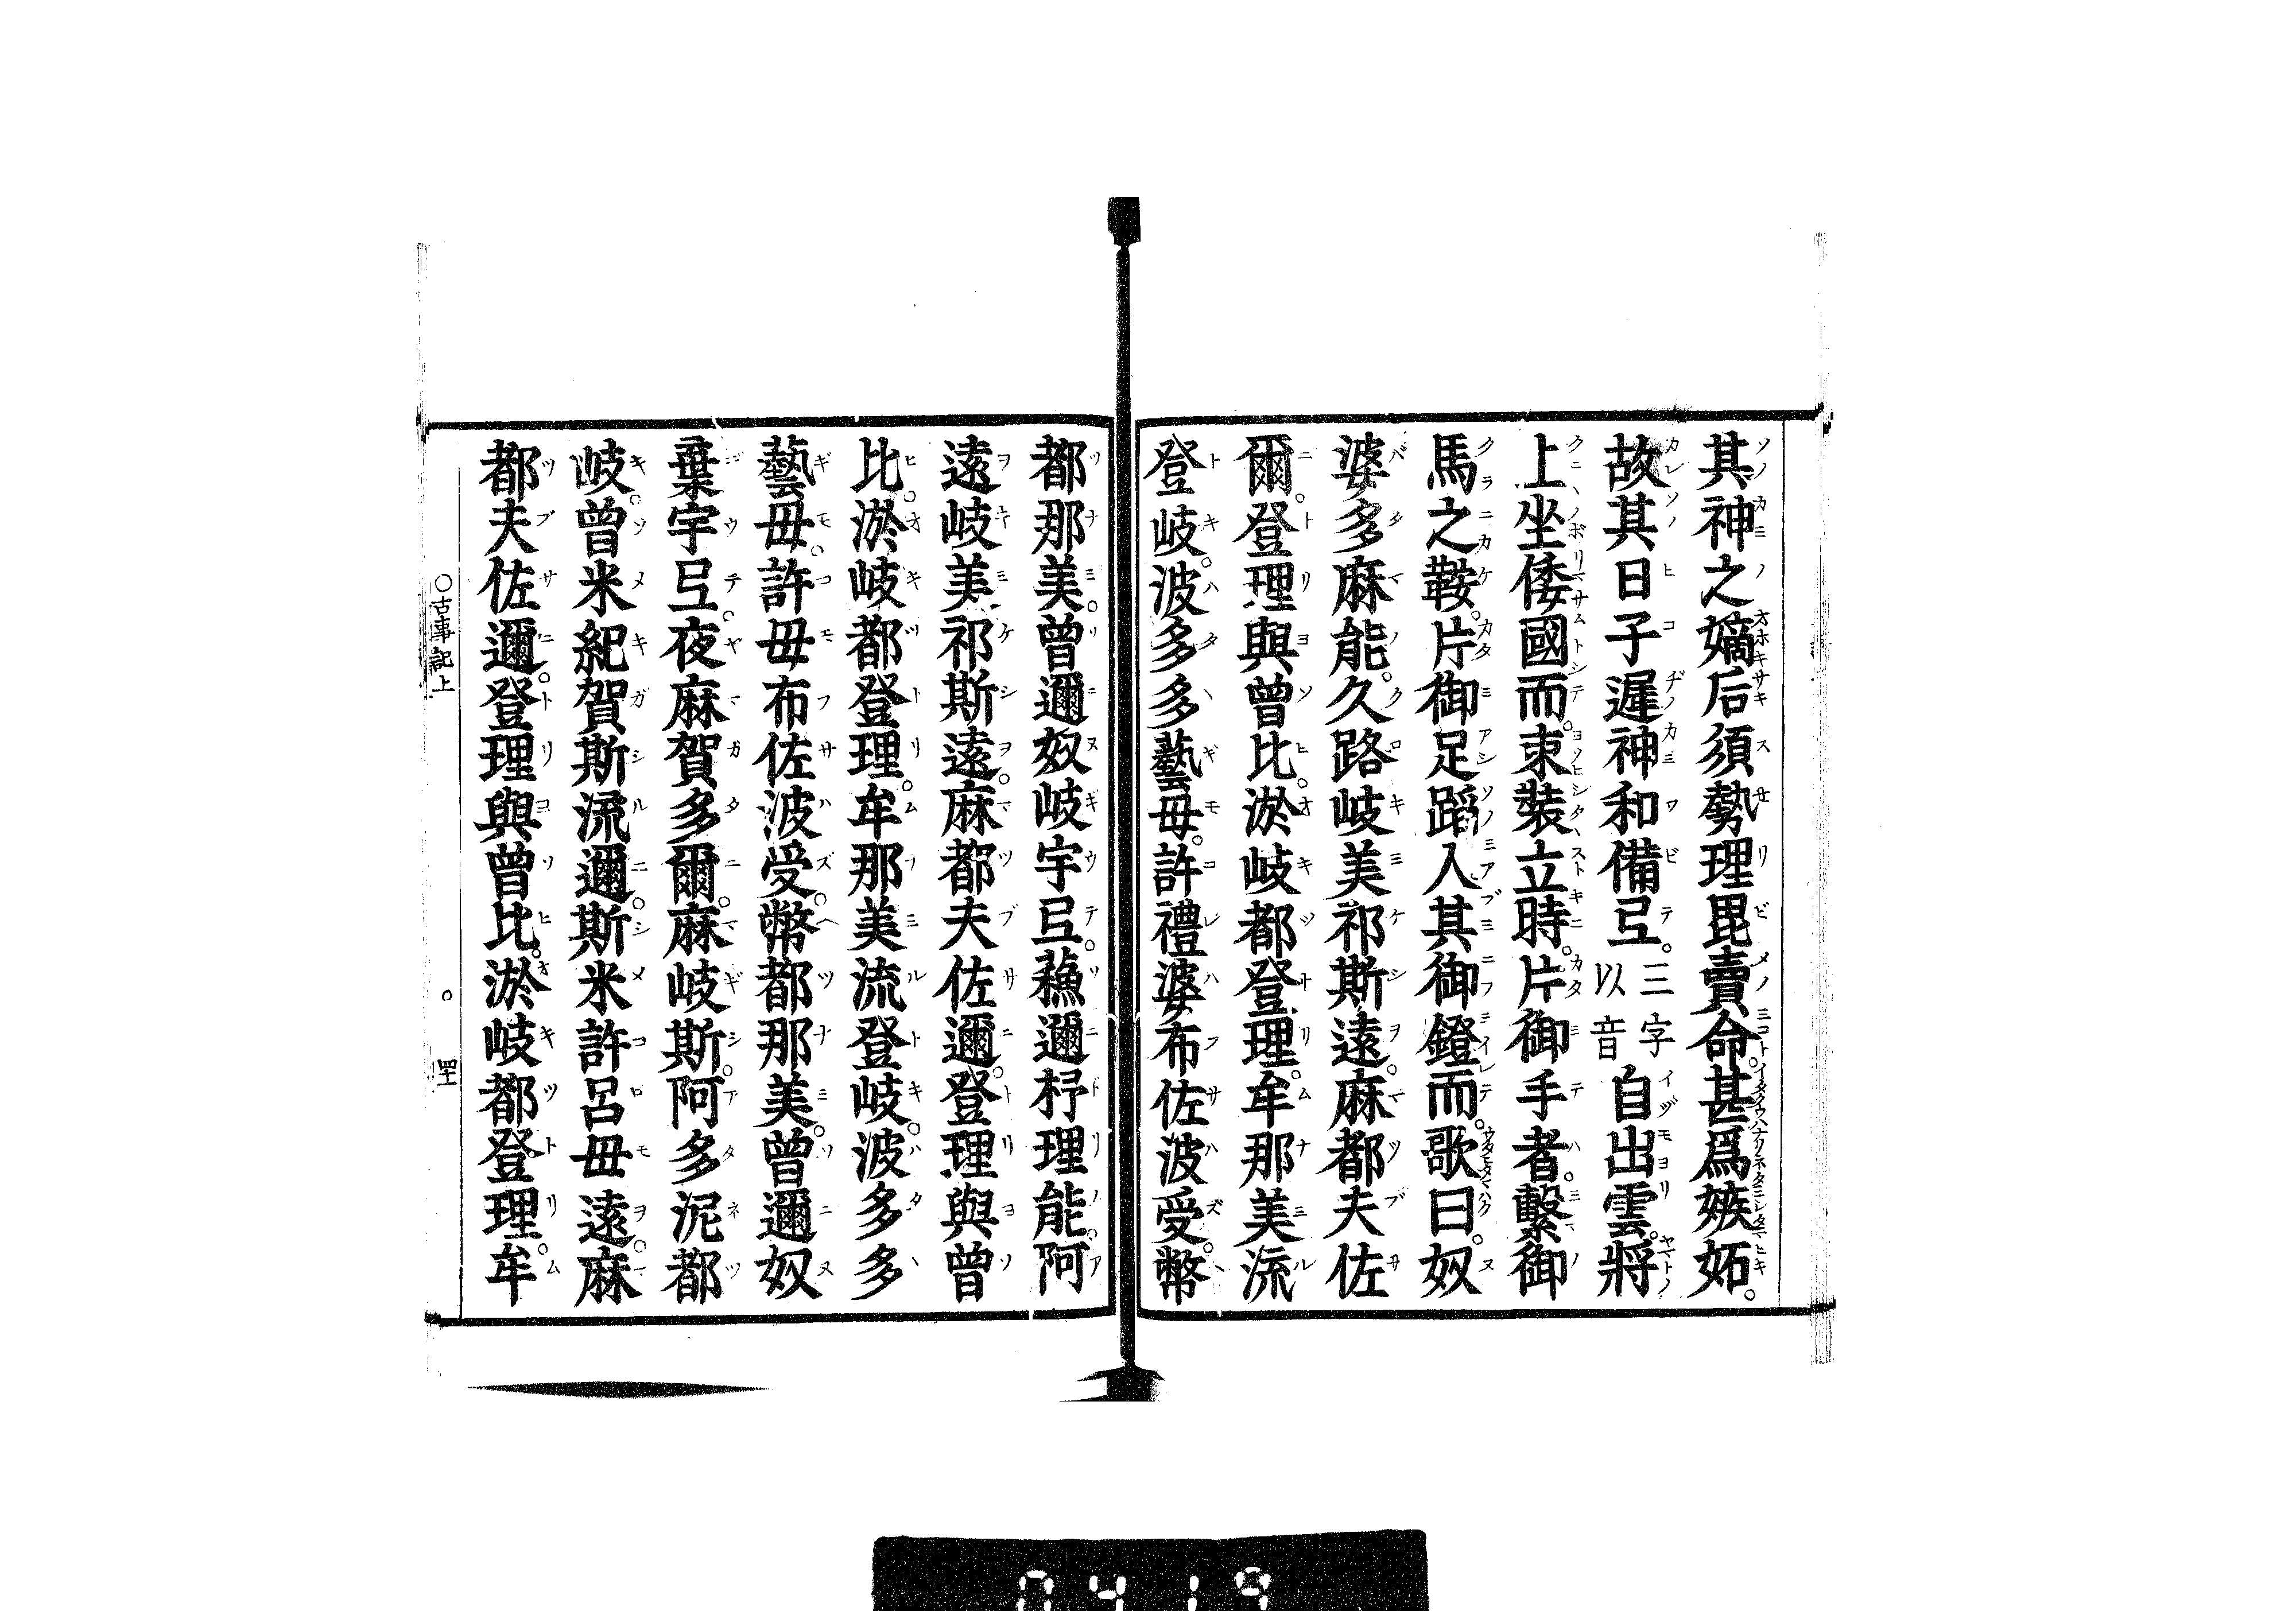 其神之嫡后須勢理毘賣命。甚爲嫉妬。
故其日子遲神和備弖。三字以音自出雲。將
上坐倭國而。束裝立時。片御手者。繫御
馬之鞍。片御足蹈入其御鐙而。歌曰。奴
婆多麻能。久路岐美祁斯遠。麻都夫佐
爾。登理與曾比。淤岐都登理。牟那美流
登岐。波多多藝毋。許禮婆布佐波受。幣
都那美。曾邇奴岐宇弖。蘓邇杼理能。阿
遠岐美祁斯遠。麻都夫佐邇。登理與曾
比。淤岐都登理。牟那美流登岐。波多多
藝毋。許毋布佐波受。幣都那美。曾邇奴
棄宇弖。夜麻賀多爾。麻岐斯。阿多泥都
岐。曾米紀賀斯流邇。斯米許呂毋遠。麻
都夫佐邇。登理與曾比。淤岐都登理。牟
○古事記上
0419